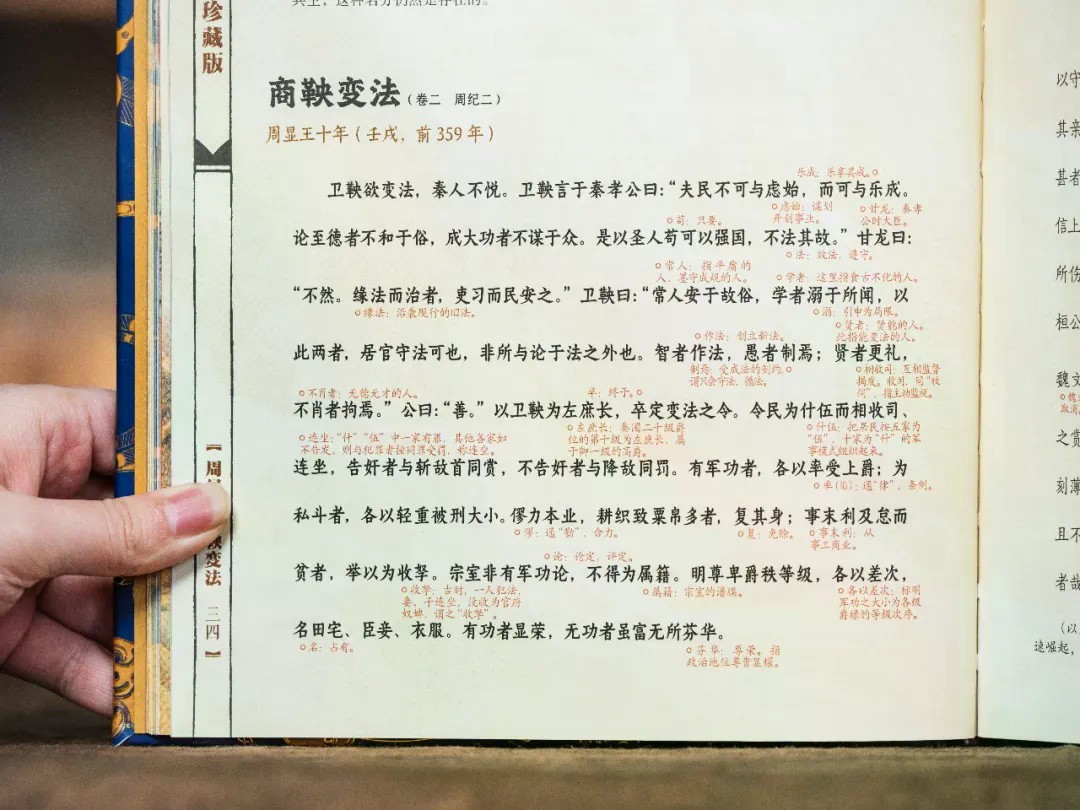 珍藏版
商鞅变法（卷二 周纪二）
周显王十年（壬戌，前359年）
乐成：乐享其成。
卫鞅欲变法，秦人不悦。卫鞅言于秦孝公曰：“夫民不可与虑始，而可与乐成。
苟：只要。
虑始：谋划
开创事业。
甘龙：秦孝
公时大臣。
论至德者不和于俗，成大功者不谋于众。是以圣人苟可以强国，不法其故。”甘龙曰：
常人：指平庸的
人、墨守成规的人。
法：效法、遵守。
学者：这里指食古不化的人。
“不然。缘法而治者，吏习而民安之。”卫鞅曰：“常人安于故俗，学者溺于所闻，以
缘法：沿袭现行的旧法。
溺：引申为局限。
作法：创立新法。
贤者：贤能的人。
此指能变法的人。
此两者，居官守法可也，非所与论于法之外也。智者作法，愚者制焉；贤者更礼，
不肖者：无德无才的人。
卒：终于。
制焉：受成法的制约，
谓只会守法、循法。
相收司：互相监督
揭发。收司，同“牧
伺”，指主动监视。
不肖者拘焉。”公曰：“善。”以卫鞅为左庶长，卒定变法之令。令民为什伍而相收司、
连坐：“什”“伍”中一家有罪，其他各家如
不告发，则与犯罪者按同罪受罚，称连坐。
左庶长：秦国二十级爵
位的第十级为左庶长，属
于卿一级的高爵。
什伍：把居民按五家为
“伍”、十家为“什”的军
事模式组织起来。
连坐，告奸者与斩敌首同赏，不告奸者与降敌同罚。有军功者，各以率受上爵；为
率(lǜ)：通“律”，条例。
私斗者，各以轻重被刑大小。僇力本业，耕织致粟帛多者，复其身；事末利及怠而
僇：通“勠”，合力。
复：免除。
事末利：从
事工商业。
论：论定、评定。
贫者，举以为收孥。宗室非有军功论，不得为属籍。明尊卑爵秩等级，各以差次，
收孥：古时，一人犯法，
妻、子连坐，没收为官府
奴婢，谓之“收孥”。
属籍：宗室的谱牒。
各以差次：标明
军功之大小为各级
爵禄的等级次序。
名田宅、臣妾、衣服。有功者显荣，无功者虽富无所芬华。
名：占有。
芬华：尊荣。指
政治地位尊贵显耀。
【周
鞅变法
三四】
以守
其亲
甚者
信上
所伤
桓公
魏文
取消
之赏
刻薄
且不
者哉
（以
速崛起，